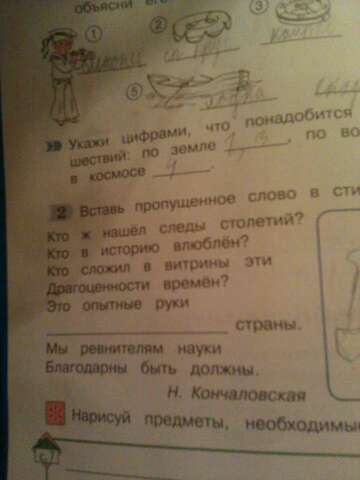 объясни его
1 2 3
5
Укажи цифрами, что понадобится
шествий: по земле 1, 3, по во
в космосе 4.
2 Вставь пропущенное слово в сти
Кто ж нашёл следы столетий?
Кто в историю влюблён?
Кто сложил в витрины эти
Драгоценности времён?
Это опытные руки
страны.
Мы ревнителям науки
Благодарны быть должны.
Н. Кончаловская
Нарисуй предметы, необходимые